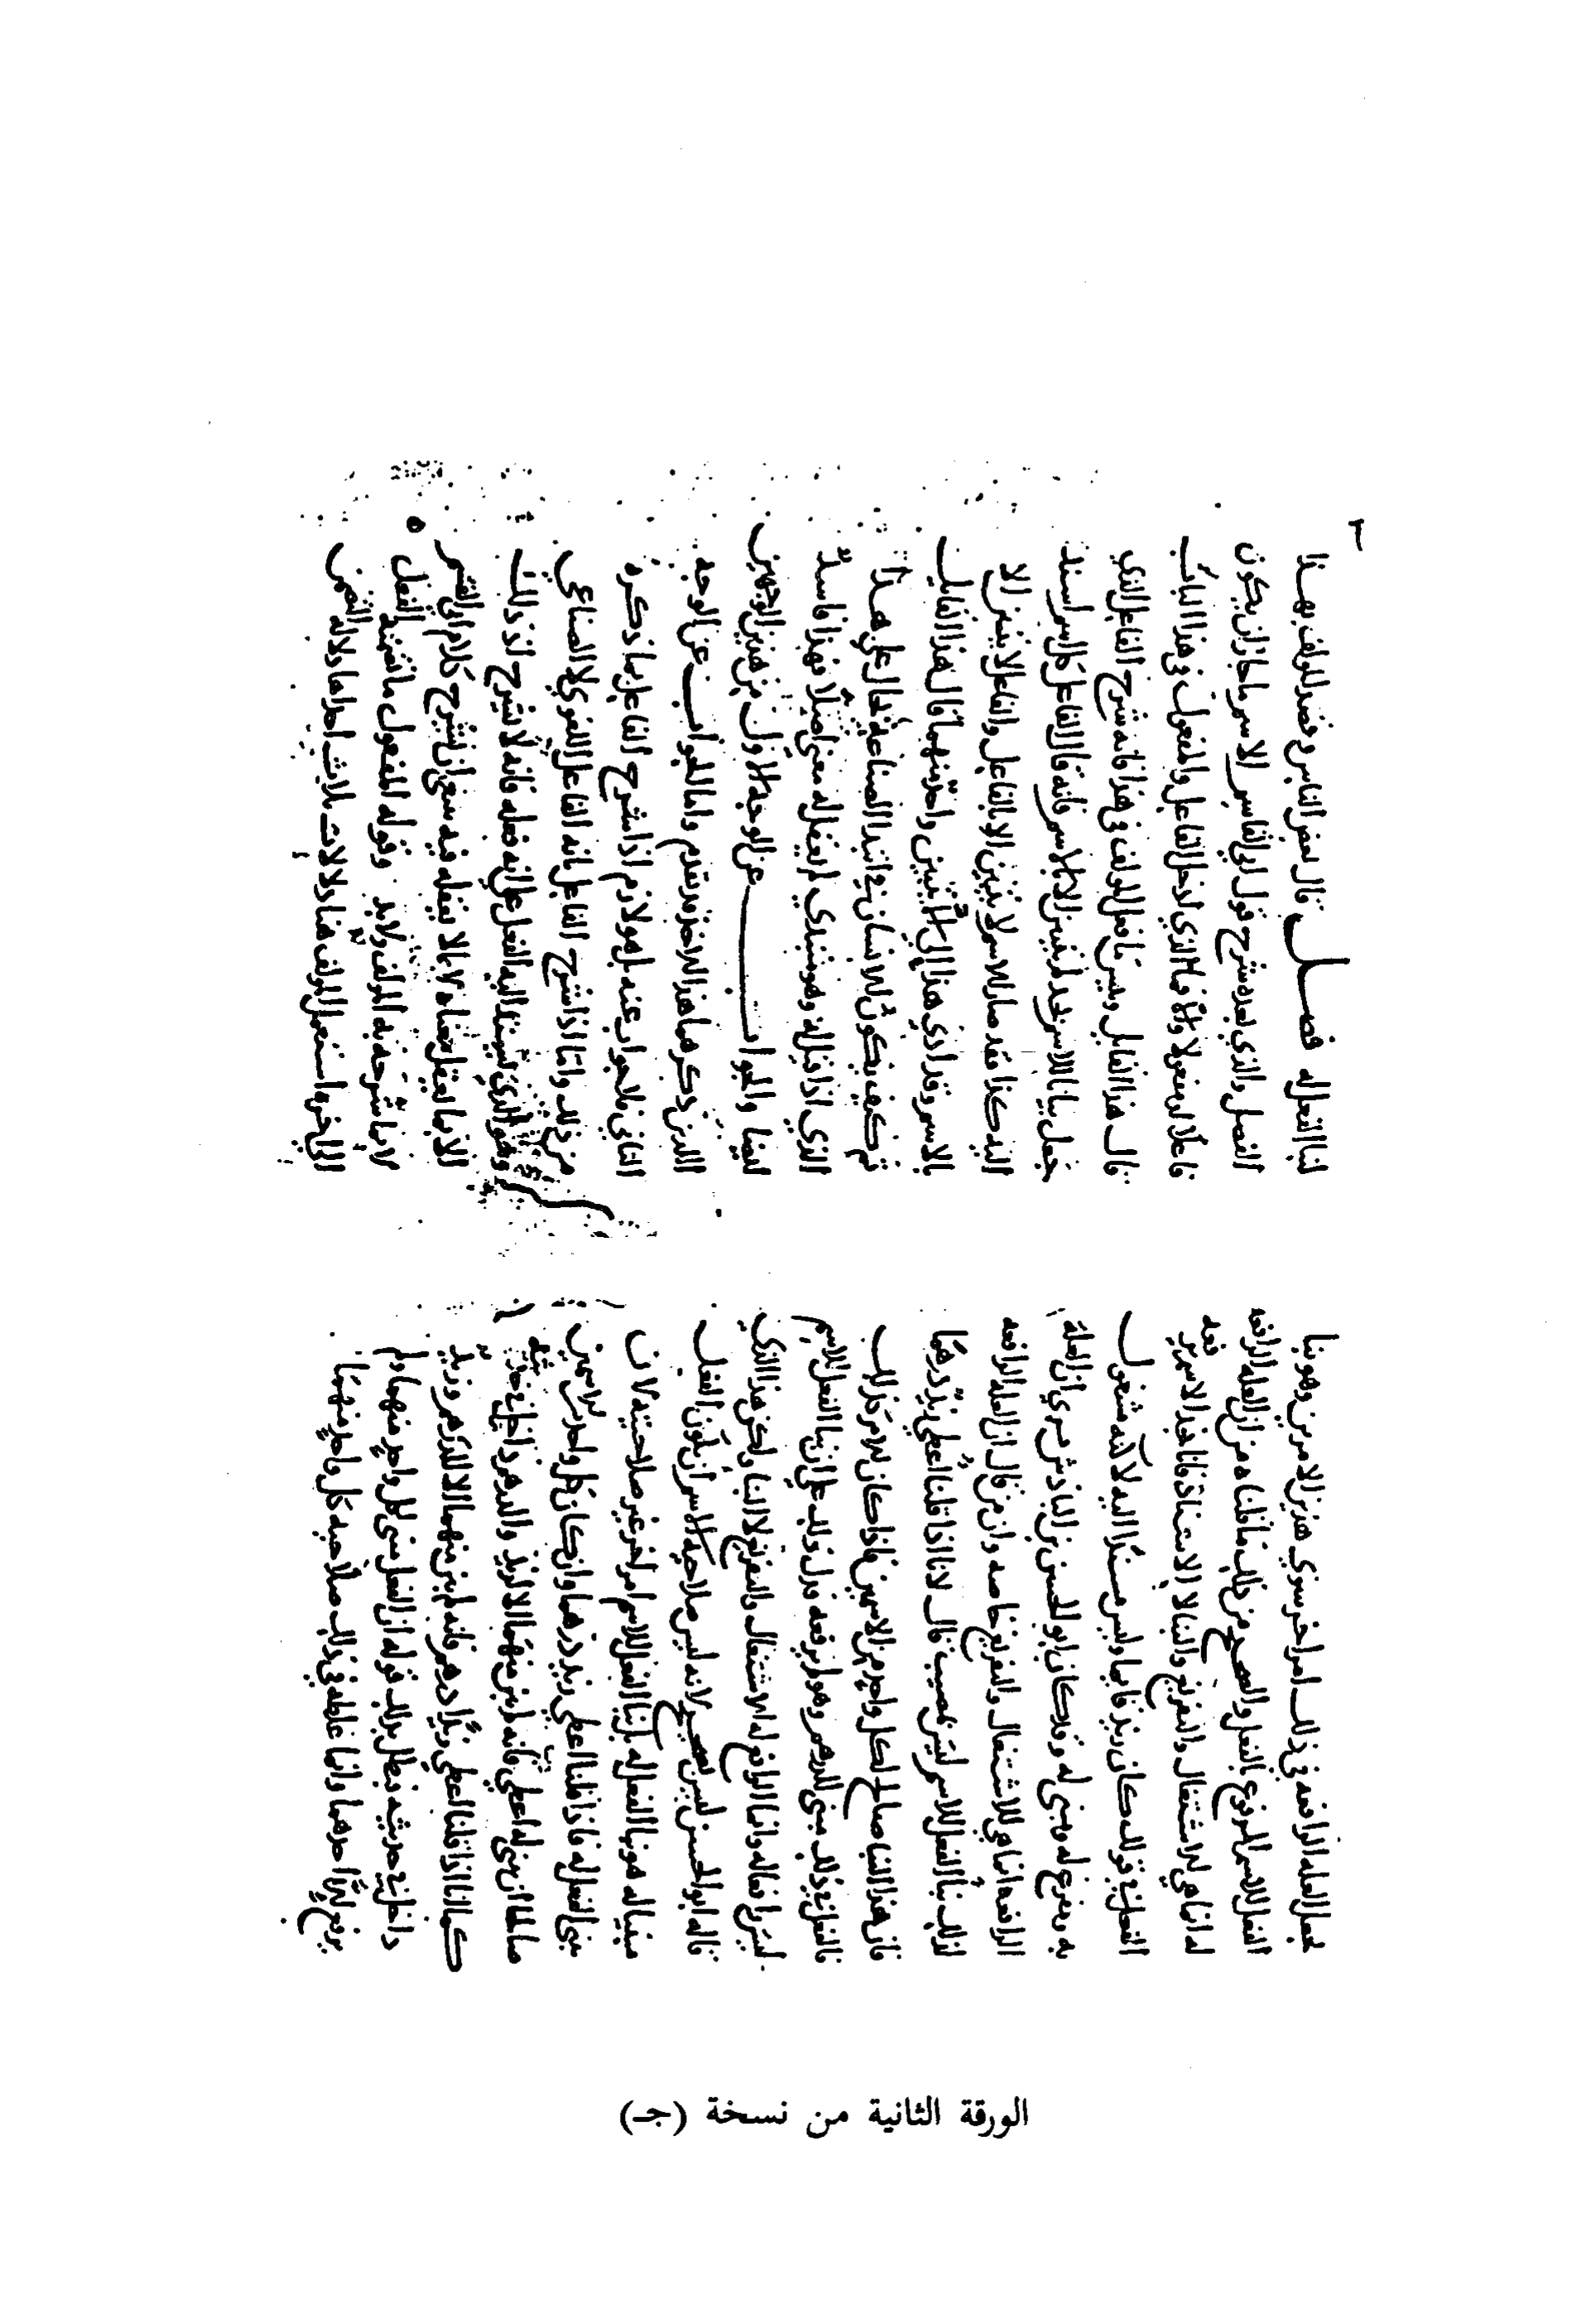 لجعل العله الرافعه في ذلك امرا اخر سوي هذين الامرين وهو بنا
الفعل للاسم المرفوع بالفعل والصحيح من ذلك ما قلناه من ان العله الرافعه
له انما هي للاشتغال والتفريغ والبنا لا الاسناد فانا نجد الاسم يرفعه
الفعل في قولك كان زيد قايما وليس مسندا اليه لاكنه مشغول
به ومفرغ له ومبني له وقد كان ابو الحسن بن الباذش يري ان العله
الرافعه انما هي للاشتغال والتفريغ خاصه وان من قال ان العله الرافعه
لذلك بنا الفعل للاسم ليس بمصيب قال لانا اذا قلنا اعطي زيد درهما
فان هذا البنا صالح لكل واحد من الاسمين فاذا كان الامر كذلك
فالفعل في ذلك مبني للدرهم وهو لم يرفعه فدل ذلك علي ان بنا الفعل للاسم
ليس رافعا له وانما الرافع له الاشتغال والتفريغ لا البنا ولكن هذا الذي
قاله ابو الحسن ليس بصحيح لانه ليس صلاحية الاسم ان يكون الفعل
مبنيا له هو بنا الفعل له بل بنا الفعل للاسم امر اخر غير صلاحيته لان
يبني الفعل له فاذا قلنا اعطي زيد درهما وان كان كل واحد من الاسمين
صالحا ان يبني له اعطي فانه لم يبن منهما الا لزيد والدرهم داخل في حديثه
كما انا اذا قلنا اعطي زيدا درهم فانه لم يبن منهما الا للدرهم وزيد
داخل في حديثه فبطل بذلك قوله ان الفعل مبني لكل واحد منهما ولم
يرفع احدهما وانما غلطه في ذلك صلاحيه كل واحد منهما
٢
لبنا الفعل له فصل قال بعض الناس وقصد المولف بهذا
الفصل والذي بعده شرح قول ابي القاسم الاسم ما جاز ان يكون
فاعلا او مفعولا والا فما الذي ادخل الفاعل والمفعول في هذا الباب
قال هذا القايل وليس ما فعل المولف في هذا فانه شرح الفاعل الذي
جعل بيانا للاسم بحد لم يتبين الا بالاسم فانه قال الفاعل كل اسم اسند
اليه كذا فقد صار الاسم لا يتبين الا بالفاعل والفاعل لا يتبين الا
بالاسم وقد ادي هذا الي الا يتبين واحد منهما قال هذا القايل
ثم كيف يكون للانسان في ابتدا الصناعه يحال علي هذا
الذي اذا قيل له وهو مبتدي لم يعقل له معني اصلا فهذا فاسد
ايضا والجواب عن الوجه الاول من هذين الوجهين
اللذين ذكرهما هذا الراد قد تقدم واما الجواب عن الوجه
الثاني فلا جواب عنه بل هو لازم اذا شرح الفاعل بما ذكره
من ذلك واما اذا شرح الفاعل بانه الفاعل اللغوي لا الصناعي
وهو الذي يسند اليه الفعل علي انه فعله فانه لا يشرح اذ ذلك
الا بما يعقل معناه لا بما لا يعقله فيه ينبغي ان يشرح كلام ابي القسم
لا بما شرحه به المولف ولابد وقوله المفعول ما تضمنه الفعل
الي اخره استعمل المولف هنا دلالات ثلاث احداها دلالة التضمن
الورقة الثانية من نسخة (جـ)